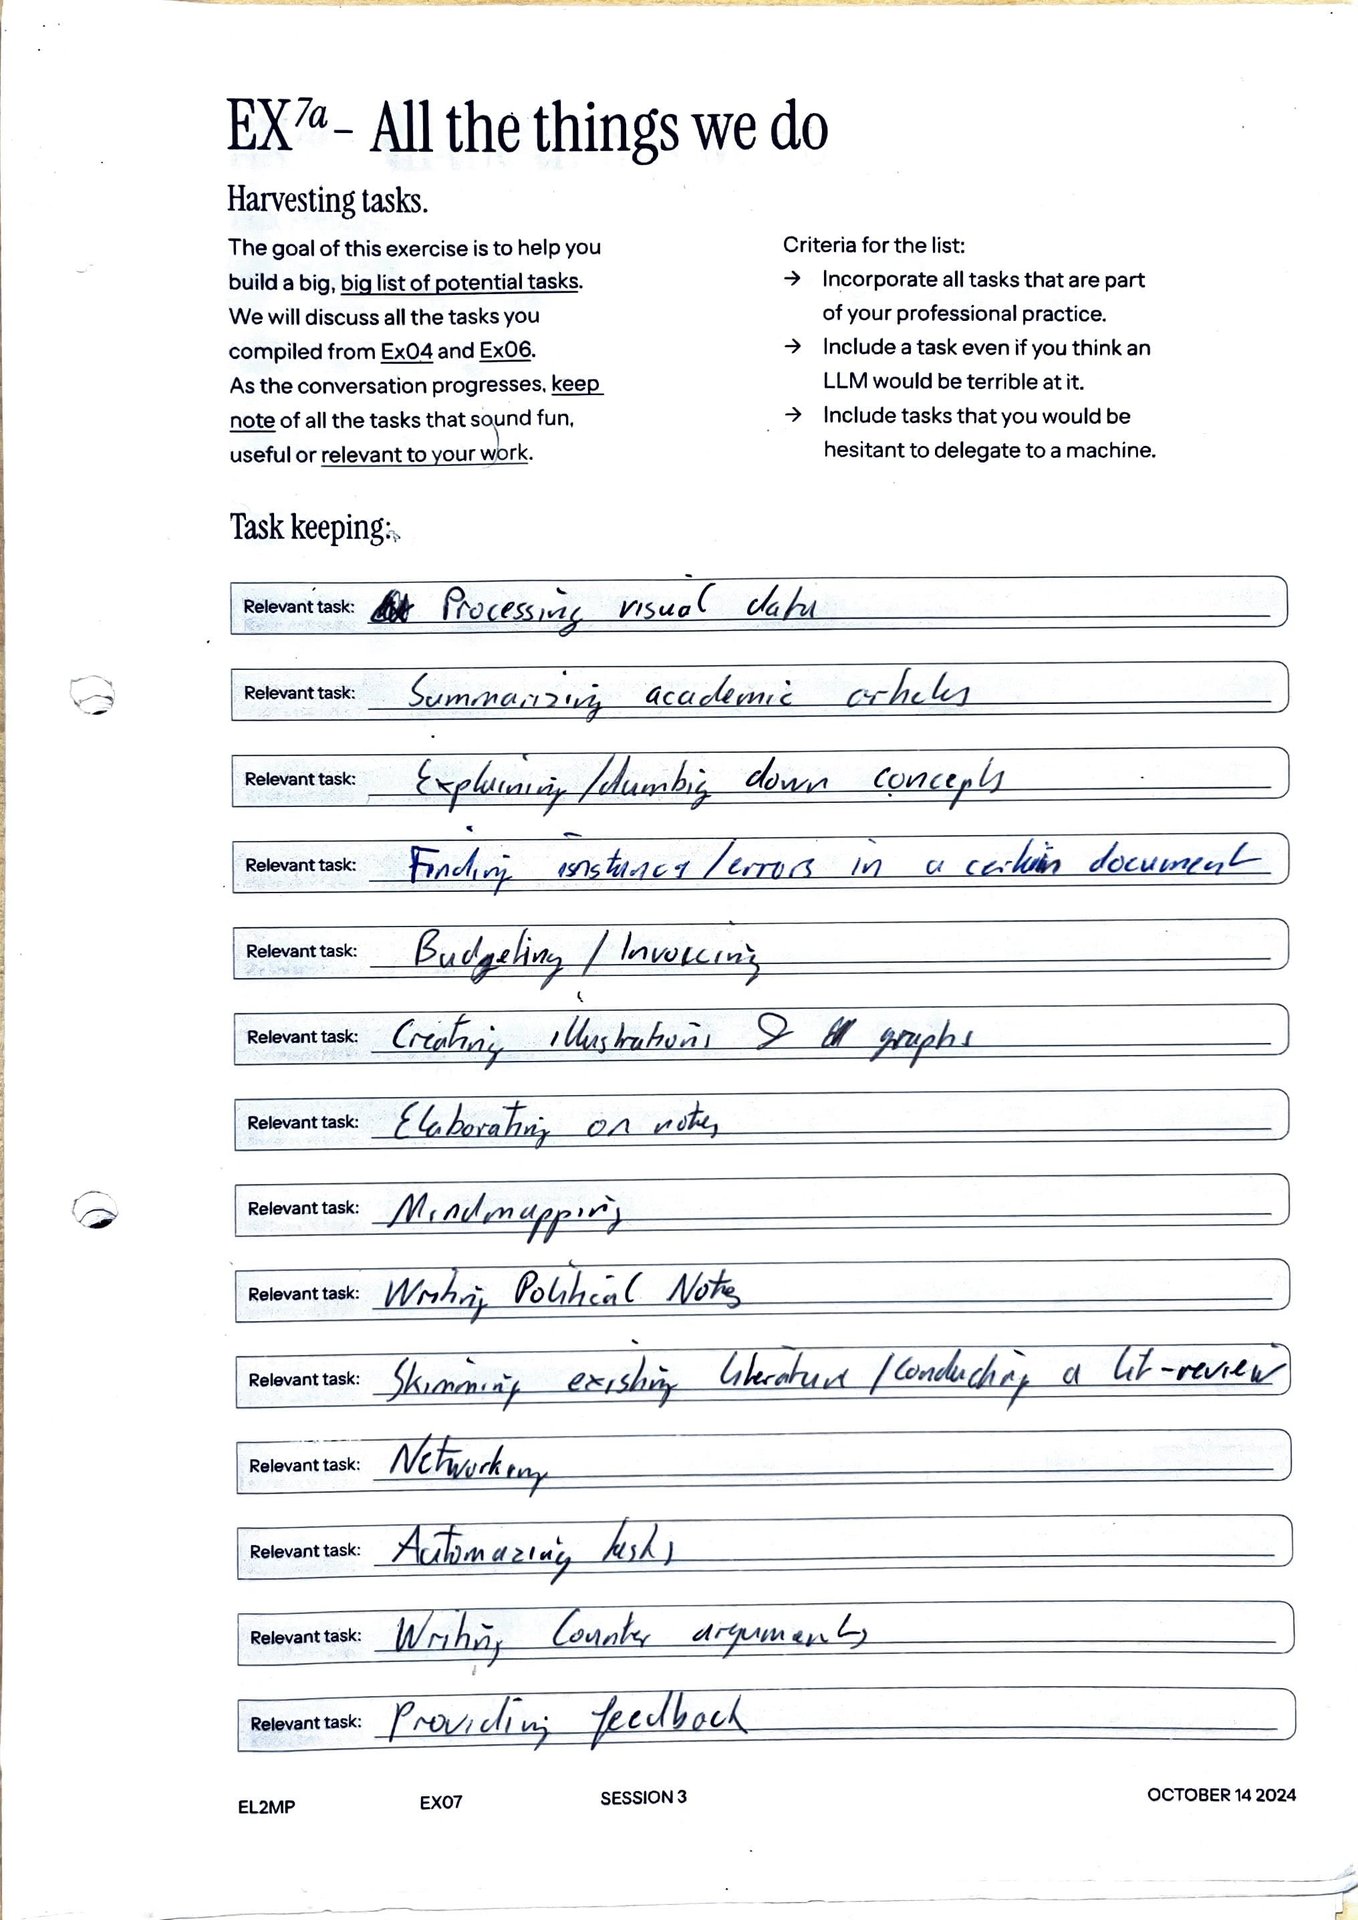 EX7a – All the things we do
Harvesting tasks.
The goal of this exercise is to help you
build a big, big list of potential tasks.
We will discuss all the tasks you
compiled from Ex04 and Ex06.
As the conversation progresses, keep
note of all the tasks that sound fun,
useful or relevant to your work.
Criteria for the list:
→ Incorporate all tasks that are part
of your professional practice.
→ Include a task even if you think an
LLM would be terrible at it.
→ Include tasks that you would be
hesitant to delegate to a machine.
Task keeping:
Relevant task: Processing visual data
Relevant task: Summarizing academic articles
Relevant task: Explaining/dumbig down concepts
Relevant task: Finding /errors in a certain document
Relevant task: Budgeting / Invoicing
Relevant task: Creating illustrations & graphs
Relevant task: Elaborating on notes
Relevant task: Mindmapping
Relevant task: Writing Political Notes
Relevant task: Skimming existing literature /conducting a lit-review
Relevant task: Networking
Relevant task: Automazing tasks
Relevant task: Writing Counter arguments
Relevant task: Providing feedback
EL2MP EX07 SESSION 3 OCTOBER 14 2024